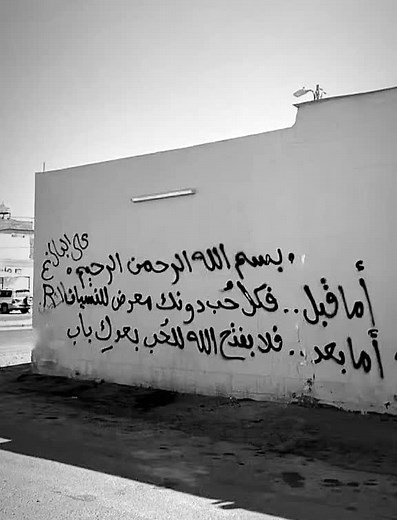 . بسم الله الرحمن الرحيم .
أما قبل .. فكل حُب دونك معرض للنسيان
أما بعد .. فلا يفتح الله للحُب بعدكِ باب